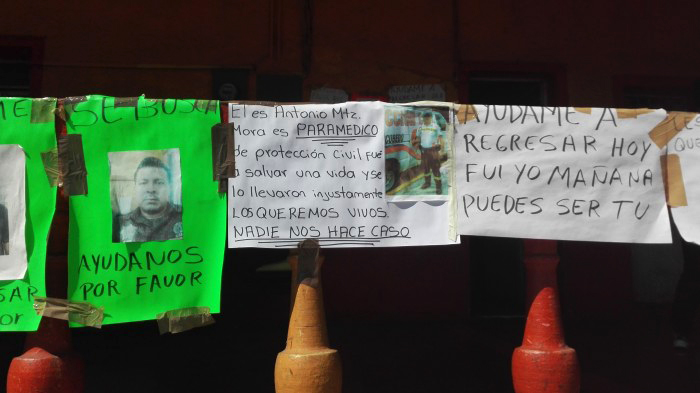 SE BUSCA
AYUDANOS
POR FAVOR
El es Antonio Mtz.
Mora es PARAMEDICO
de protección Civil fué
a salvar una vida yse
lo llevaron injustamente
LOS QUEREMOS VIVOS.
NADIE NOS HACE CASO
AYUDAME A
REGRESAR HOY
FUI YO MAÑANA
PUEDES SER TU